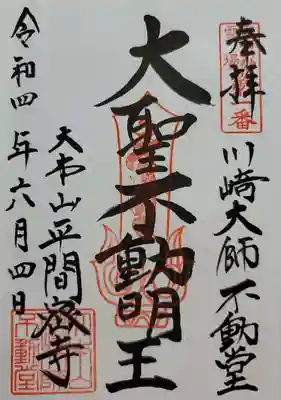 奉拝
川崎大師 不動堂
大聖不動明王
大本山平間寺
令和四年六月四日